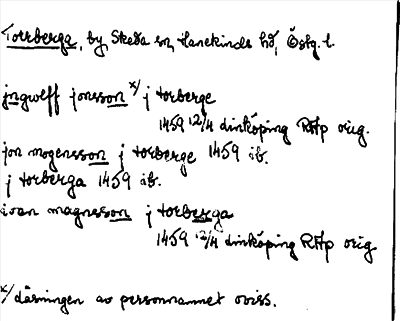 Torrberga, by, Skeda sn, Hanekinds hd, Östg. l.
jngwlff jonsson x/ j torberge
1459 12/4 Linköping RAp orig.
jon mogensson j torberge 1459 ib.
j torberga 1459 ib.
ivan magnsson j torberga
1459 12/4 Linköping RAp orig
x/ läsningen av personnamnet oviss.